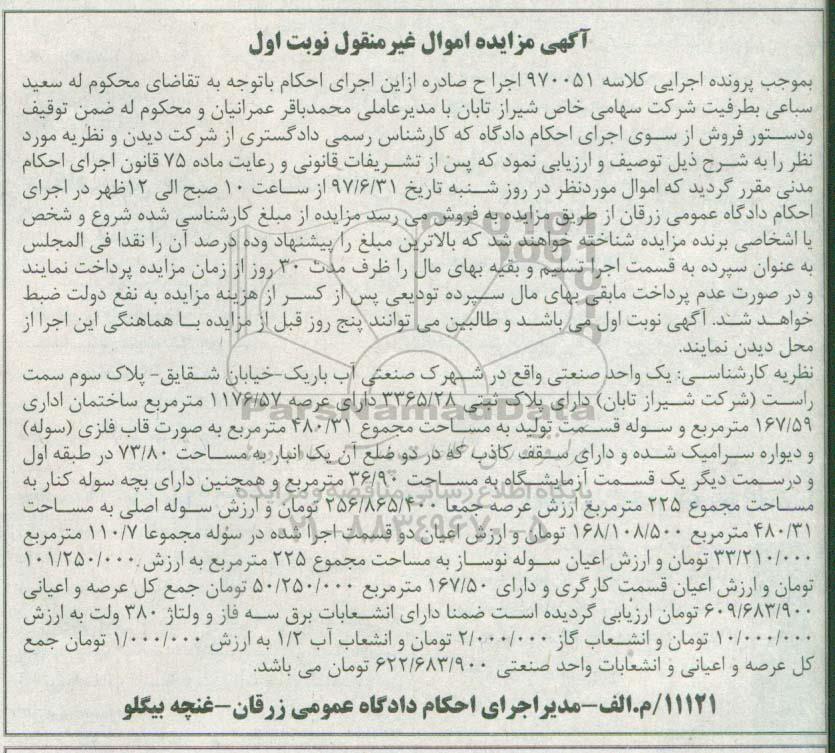 آگهی مزایده اموال غیرمنقول نوبت اول
بموجب پرونده اجرایی کلاسه ۹۷۰۰۵۱ اجرا ح صادره ازاین اجرای احکام باتوجه به تقاضای محکوم له سعید
سباعی بطرفیت شرکت سهامی خاص شیراز تابان با مدیرعاملی محمدباقر عمرانیان و محکوم له ضمن توقیف
ودستور فروش از سوی اجرای احکام دادگاه که کارشناس رسمی دادگستری از شرکت دیدن و نظریه مورد
نظر را به شرح ذیل توصیف و ارزیابی نمود که پس از تشریفات قانونی و رعایت ماده ۷۵ قانون اجرای احکام
مدنی مقرر گردید که اموال موردنظر در روز شنبه تاریخ ۹۷/۶/۳۱ از ساعت ۱۰ صبح الی ۱۲ظهر در اجرای
احکام دادگاه عمومی زرقان از طریق مزایده به فروش می رسد مزایده از مبلغ کارشناسی شده شروع و شخص
یا اشخاصی برنده مزایده شناخته خواهند شد که بالاترین مبلغ را پیشنهاد وده درصد آن را نقدا فی المجلس
به عنوان سپرده به قسمت اجرا تسلیم و بقیه بهای مال را ظرف مدت ۳۰ روز از زمان مزایده پرداخت نمایند
و در صورت عدم پرداخت مابقی بهای مال سپرده تودیعی پس از کسر از هزینه مزایده به نفع دولت ضبط
خواهد شد. آگهی نوبت اول می باشد و طالبین می توانند پنج روز قبل از مزایده با هماهنگی این اجرا از
محل دیدن نمایند.
نظریه کارشناسی: یک واحد صنعتی واقع در شهرک صنعتی آب باریک-خیابان شقایق- پلاک سوم سمت
راست (شرکت شیراز تابان) دارای پلاک ثبتی ۳۳۶۵/۲۸ دارای عرصه ۱۱۷۶/۵۷ مترمربع ساختمان اداری
۱۶۷/۵۹ مترمربع و سوله قسمت تولید به مساحت مجموع ۴۸۰/۳۱ مترمربع به صورت قاب فلزی (سوله)
و دیواره سرامیک شده و دارای سقف کاذب که در دو ضلع آن یک انبار به مساحت ۷۳/۸۰ در طبقه اول
و درسمت دیگر یک قسمت آزمایشگاه به مساحت ۳۶/۹۰ مترمربع و همچنین دارای بچه سوله کنار به
مساحت مجموع ۲۲۵ مترمربع ارزش عرصه جمعا ۲۵۶/۸۶۵/۴۰۰ تومان و ارزش سوله اصلی به مساحت
۴۸۰/۳۱ مترمربع ۱۶۸/۱۰۸/۵۰۰ تومان و ارزش اعیان دو قسمت اجرا شده در سوله مجموعا ۱۱۰/۷ مترمربع
۳۳/۲۱۰/۰۰۰ تومان و ارزش اعیان سوله نوساز به مساحت مجموع ۲۲۵ مترمربع به ارزش ۱۰۱/۲۵۰/۰۰۰
تومان و ارزش اعیان قسمت کارگری و دارای ۱۶۷/۵۰ مترمربع ۵۰/۲۵۰/۰۰۰ تومان جمع کل عرصه و اعیانی
۶۰۹/۶۸۳/۹۰۰ تومان ارزیابی گردیده است ضمنا دارای انشعابات برق سه فاز و ولتاژ ۳۸۰ ولت به ارزش
۱۰/۰۰۰/۰۰۰ تومان و انشعاب گاز ۲/۰۰۰/۰۰۰ تومان و انشعاب آب ۱/۲ به ارزش ۱/۰۰۰/۰۰۰ تومان جمع
کل عرصه و اعیانی و انشعابات واحد صنعتی ۶۲۲/۶۸۳/۹۰۰ تومان می باشد.
۱۱۱۲۱/م.الف-مدیراجرای احکام دادگاه عمومی زرقان-غنچه بیگلو
ParsNamadData
پایگاه اطلاع رسانی مناقصه و مزایده
۰۲۱-۸۸۳۴۹۶۷۰-۵